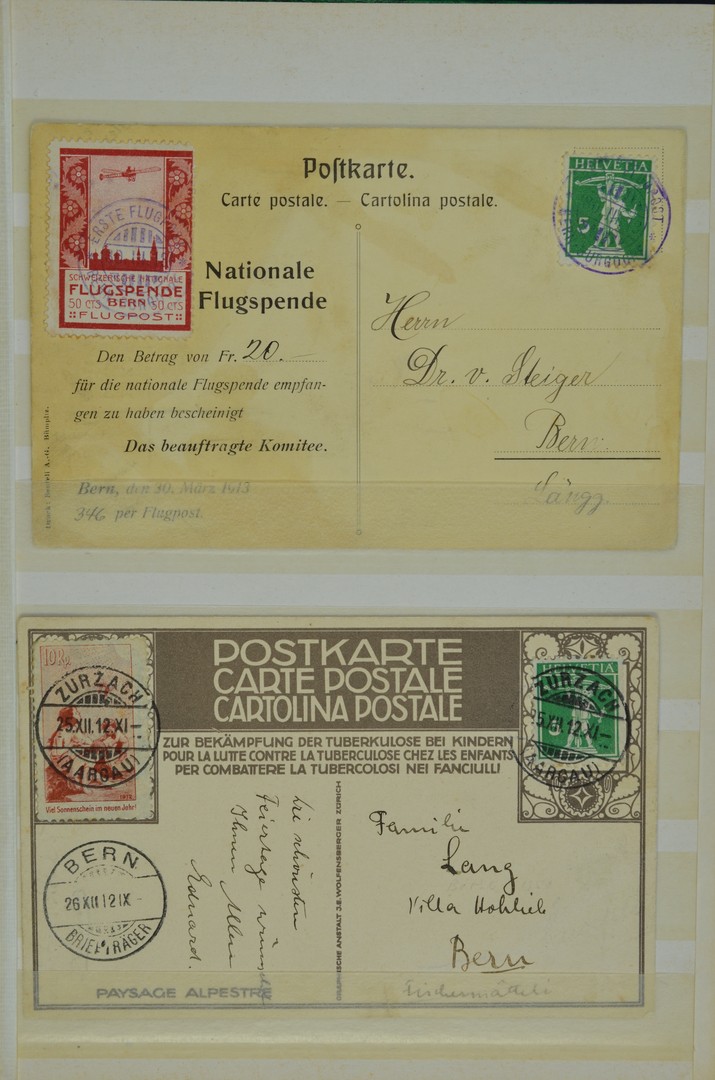 Postkarte.
Carte postale. — Cartolina postale.
ERSTE FLUG
SCHWEIZERISCHE NATIONALE
FLUGSPENDE
50 CTS BERN 50 CTS
::FLUGPOST::
HELVETIA
5
Nationale
Flugspende
Den Betrag von Fr. 20.—
für die nationale Flugspende empfan-
gen zu haben bescheinigt
Das beauftragte Komitee.
Bern, den 30. März 1913
346 per Flugpost.
Herrn
Dr. v. Steiger
Bern
Längg.
POSTKARTE
CARTE POSTALE
CARTOLINA POSTALE
ZUR BEKÄMPFUNG DER TUBERKULOSE BEI KINDERN
POUR LA LUTTE CONTRE LA TUBERCULOSE CHEZ LES ENFANTS
PER COMBATTERE LA TUBERCOLOSI NEI FANCIULLI
10 Rp.
ZURZACH
25.XII.12.XI-
(AARGAU)
Viel Sonnenschein im neuen Jahr!
HELVETIA
ZURZACH
25.XII.12.XI-
(AARGAU)
BERN
26 XII 12 IX -
BRIEFTRÄGER
Die schönsten
Feiertage wünscht
Ihnen Allen
Eduard.
GRAPHISCHE ANSTALT J.E. WOLFENSBERGER ZÜRICH
Familie
Lang
Villa
Bern
Fischermätteli
PAYSAGE ALPESTRE